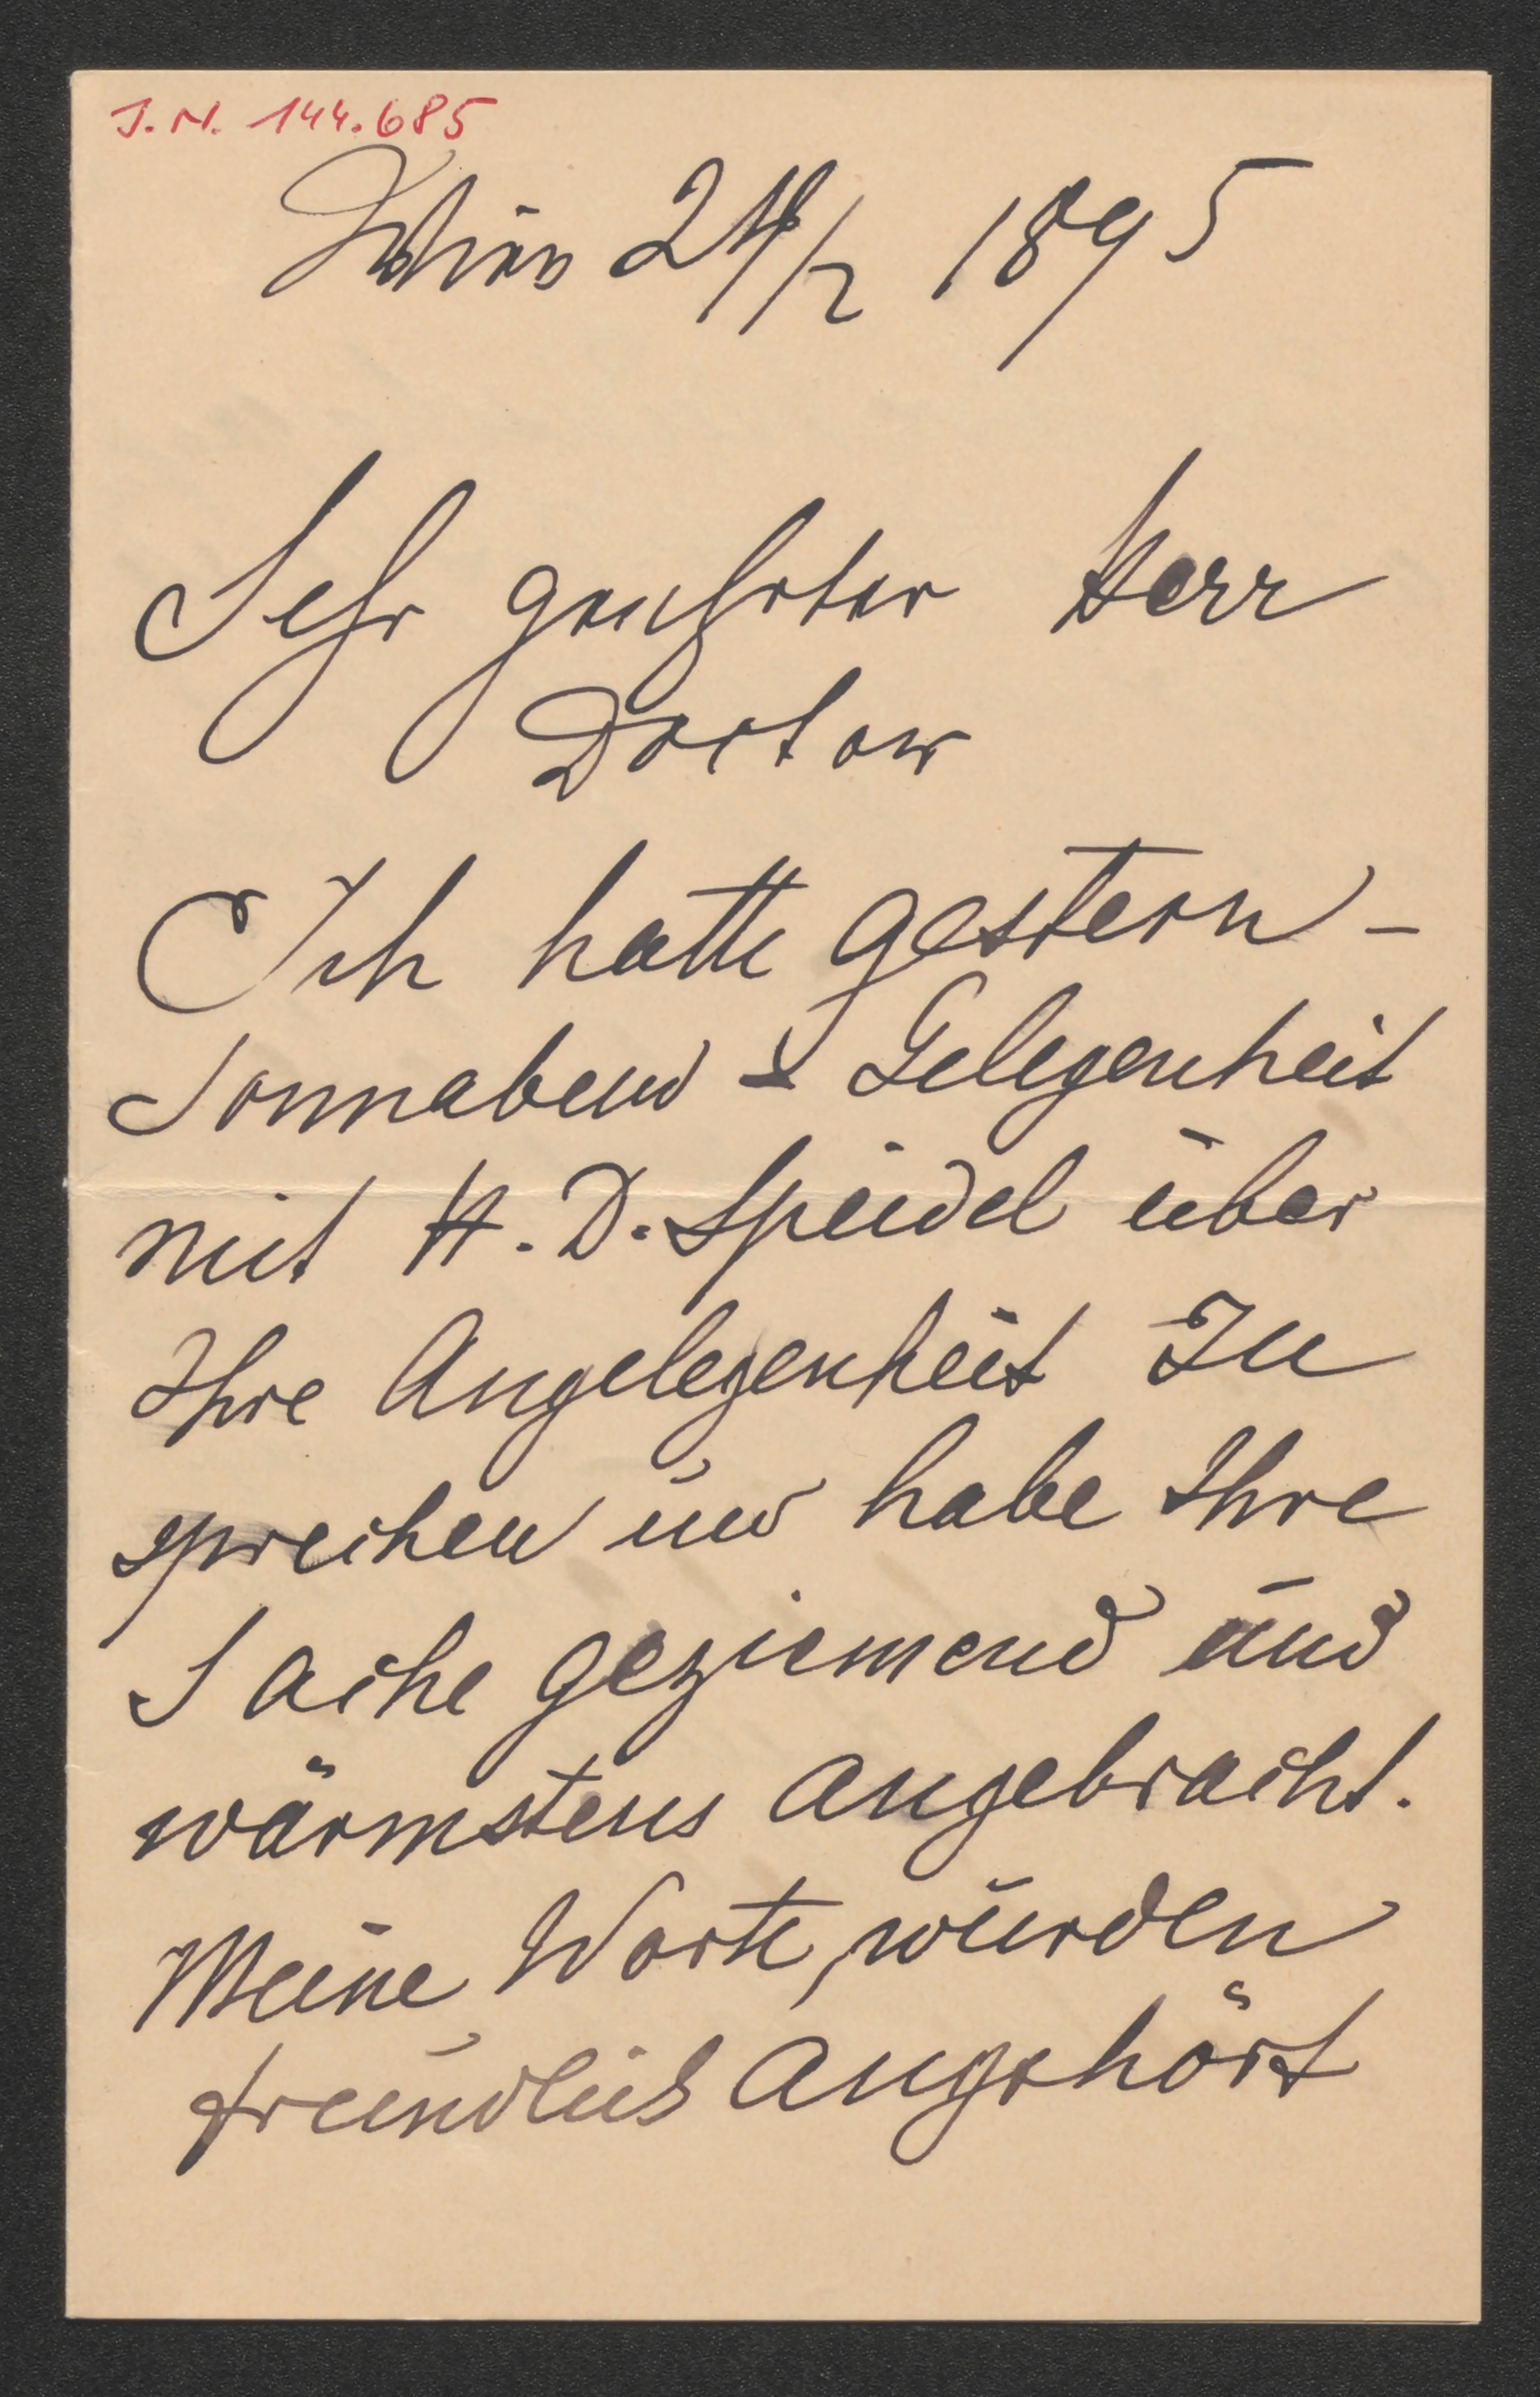 J.N. 144.685
Wien 24/2 1895
Sehr geehrter Herr
Doctor
Ich hatte gestern -
Sonnabend - Gelegenheit
mit H. D. Speidel über
Ihre Angelegenheit zu
sprechen und habe Ihre
Sache geziemend und
wärmstens angebracht.
Meine Worte, würden
freundlich angehört